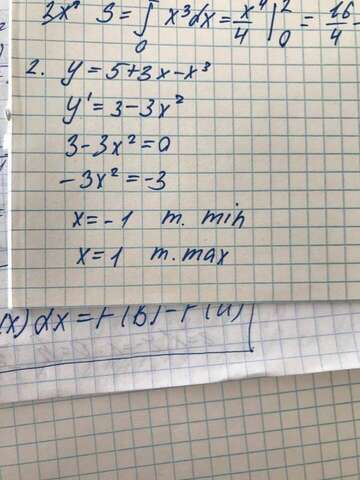 S = ∫₀ x³dx = x⁴/4 |₀² = 16/4 =
2. y = 5+3x-x³
y' = 3-3x²
3-3x²=0
-3x²=-3
x=-1 т. min
x=1 т. max
(x)dx=F(B)-F(a)